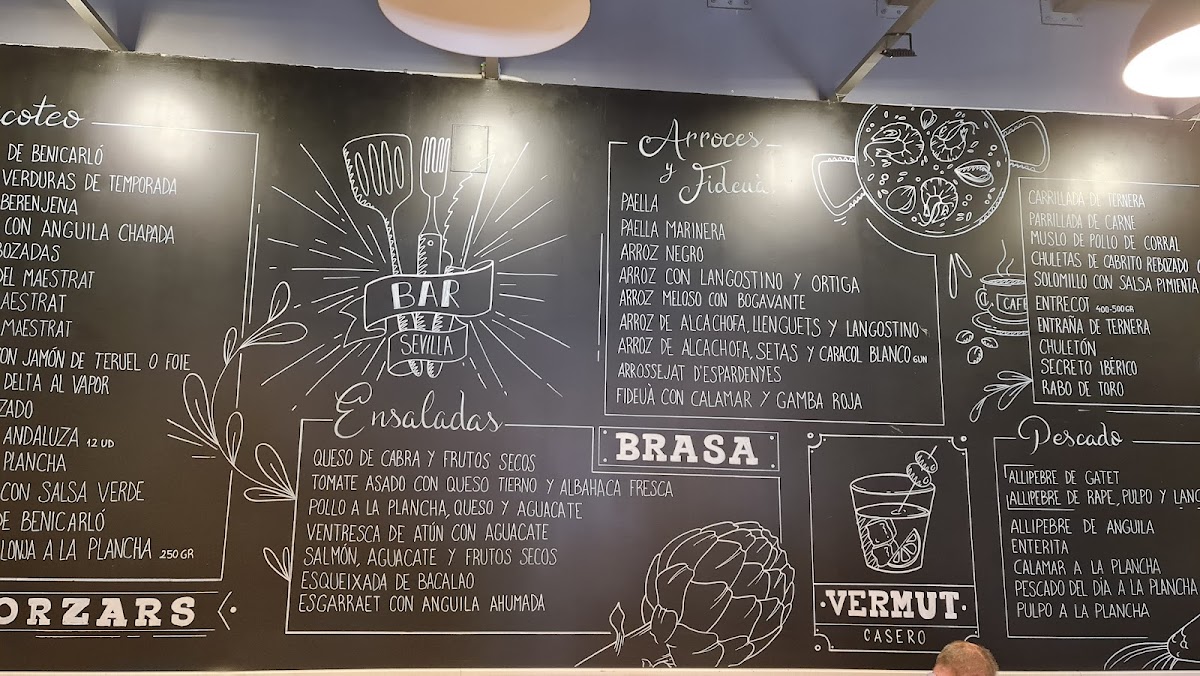 coteo
DE BENICARLÓ
VERDURAS DE TEMPORADA
BERENJENA
CON ANGUILA CHAPADA
BOZADAS
DEL MAESTRAT
AESTRAT
MAESTRAT
ON JAMÓN DE TERUEL O FOIE
DELTA AL VAPOR
ZADO
ANDALUZA 12 UD
PLANCHA
CON SALSA VERDE
DE BENICARLÓ
LONJA A LA PLANCHA 250 GR
ORZARS
BAR
SEVILLA
Ensaladas
QUESO DE CABRA Y FRUTOS SECOS
TOMATE ASADO CON QUESO TIERNO Y ALBAHACA FRESCA
POLLO A LA PLANCHA, QUESO Y AGUACATE
VENTRESCA DE ATÚN CON AGUACATE
SALMÓN, AGUACATE Y FRUTOS SECOS
ESQUEIXADA DE BACALAO
ESGARRAET CON ANGUILA AHUMADA
BRASA
Arroces
y Fideuà
PAELLA
PAELLA MARINERA
ARROZ NEGRO
ARROZ CON LANGOSTINO Y ORTIGA
ARROZ MELOSO CON BOGAVANTE
ARROZ DE ALCACHOFA, LLENGUETS Y LANGOSTINO
ARROZ DE ALCACHOFA, SETAS Y CARACOL BLANCO
ARROSSEJAT D'ESPARDENYES
FIDEUÀ CON CALAMAR Y GAMBA ROJA
VERMUT
CASERO
CAFÉ
CARRILLADA DE TERNERA
PARRILLADA DE CARNE
MUSLO DE POLLO DE CORRAL
CHULETAS DE CABRITO REBOZADO
SOLOMILLO CON SALSA PIMIENTA
ENTRECOT 400-500 GR
ENTRAÑA DE TERNERA
CHULETÓN
SECRETO IBÉRICO
RABO DE TORO
Pescado
ALLIPEBRE DE GATET
ALLIPEBRE DE RAPE, PULPO Y LANG
ALLIPEBRE DE ANGUILA
ENTERITA
CALAMAR A LA PLANCHA
PESCADO DEL DÍA A LA PLANCHA
PULPO A LA PLANCHA